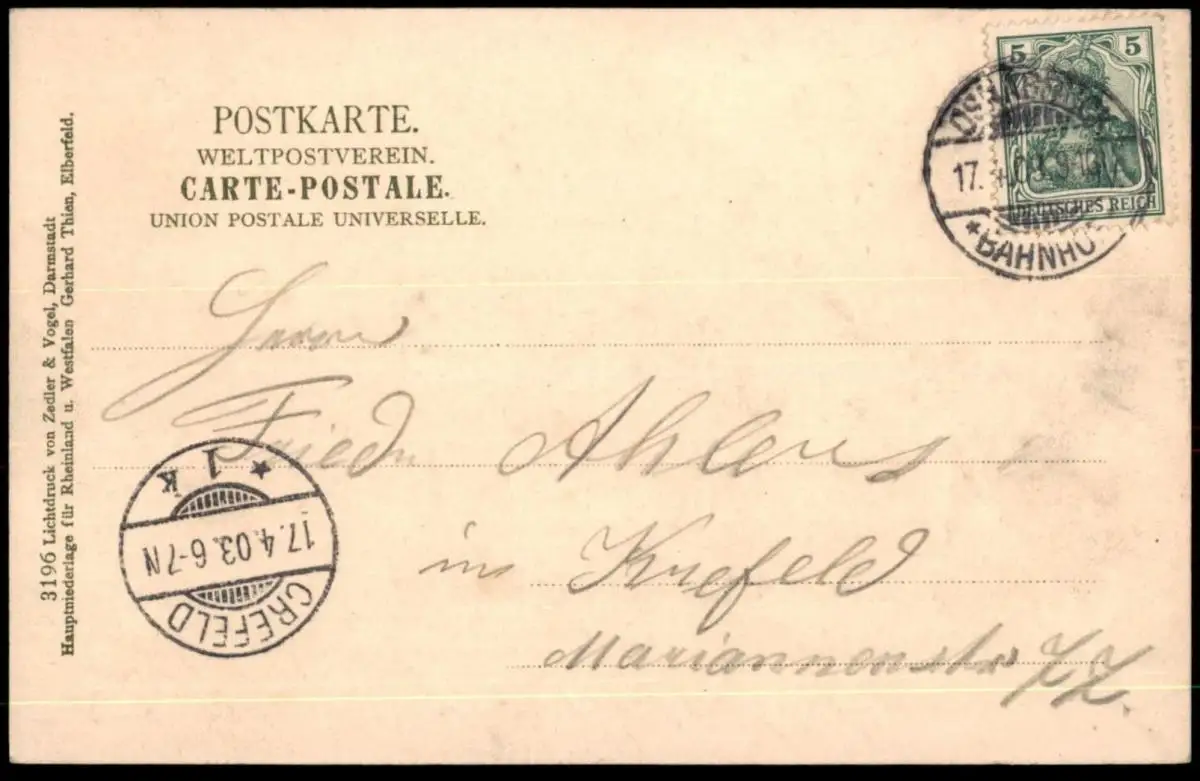 POSTKARTE.
WELTPOSTVEREIN.
CARTE-POSTALE.
UNION POSTALE UNIVERSELLE.
5 5
DEUTSCHES REICH
17. 4. 03.
* BAHNHO
Herrn
Friedr. Ahlers
in Krefeld
Mariannenstr
CREFELD
17.4.03. 6-7N
* 1 K
3196 Lichtdruck von Zedler & Vogel, Darmstadt
Hauptniederlage für Rheinland u. Westfalen Gerhard Thien, Elberfeld.